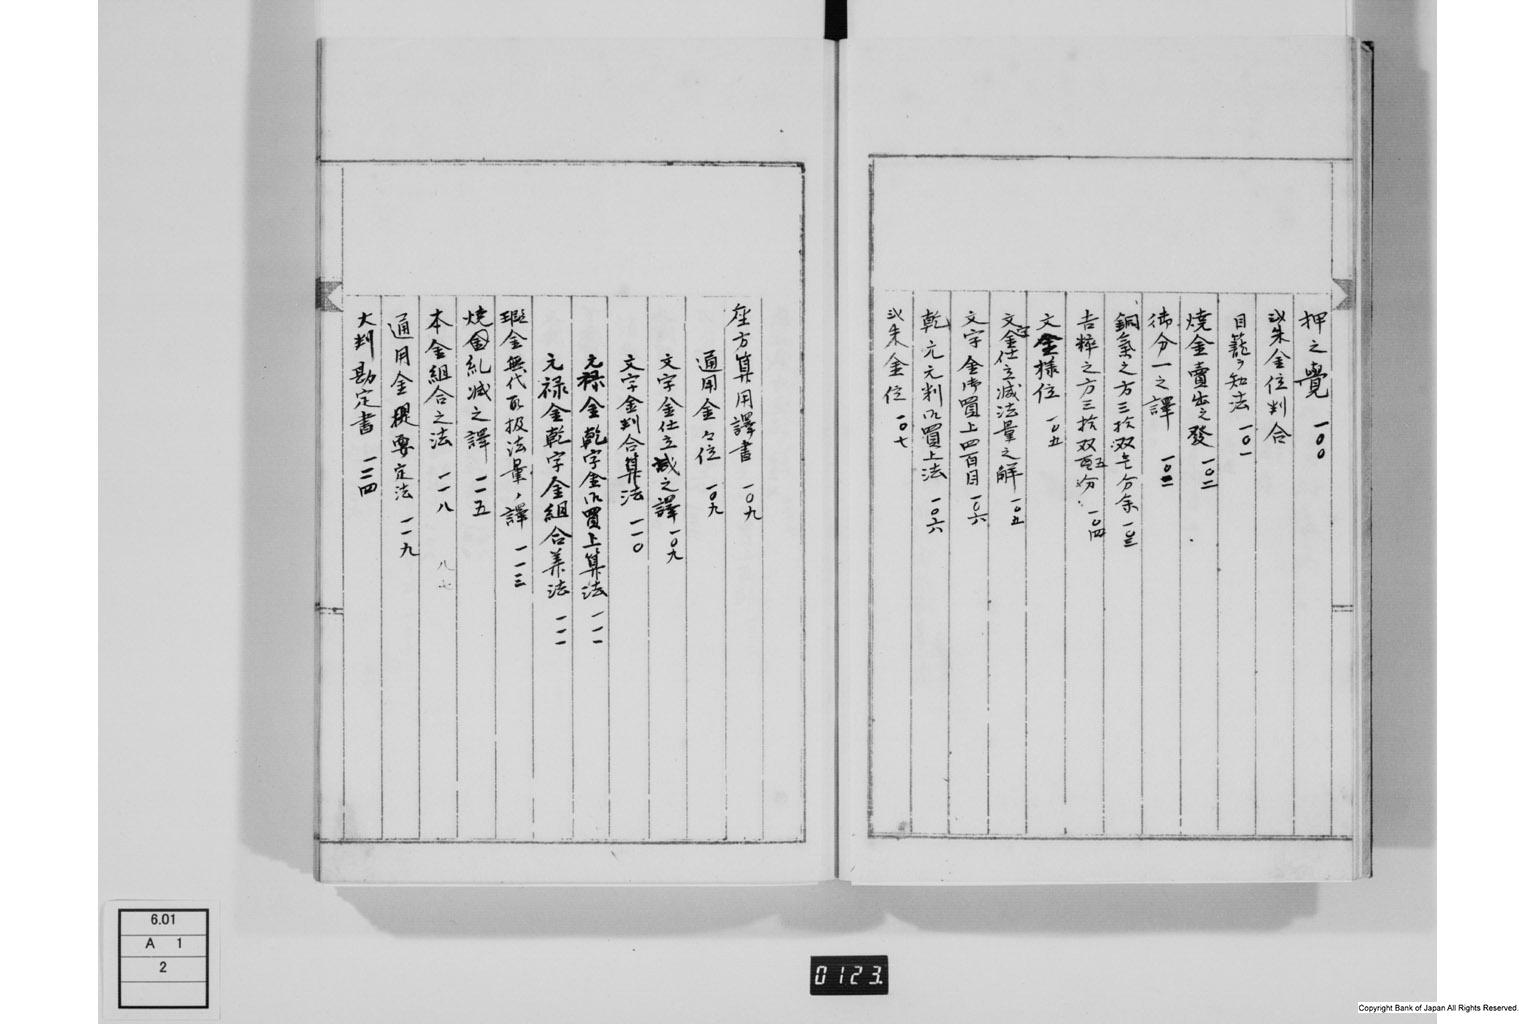 押之覺 一〇〇
弐朱金位判合
目籠ヲ知法 一〇一
焼金賣出之發 一〇二
御分一之譯 一〇二
銅氣之方三拾双七分余 一〇三
吉粹之方三拾双五分 一〇四
文金様位 一〇五
文字金仕立减法量之解 一〇五
文字金御買上四百目 一〇六
乾元元判御買上法 一〇六
弐朱金位 一〇七
座方算用譯書 一〇九
通用金々位 一〇九
文字金仕立减之譯 一〇九
文字金判合算法 一一〇
元禄金乾字金御買上算法 一一一
元禄金乾字金組合算法 一一一
瑕金無代取扱法量ノ譯 一一三
焼金糺减之譯 一一五
本金組合之法 一一八
通用金 要定法 一一九
大判勘定書 一二四
6.01
A 1
2
0123.
Copyright Bank of Japan All Rights Reserved.